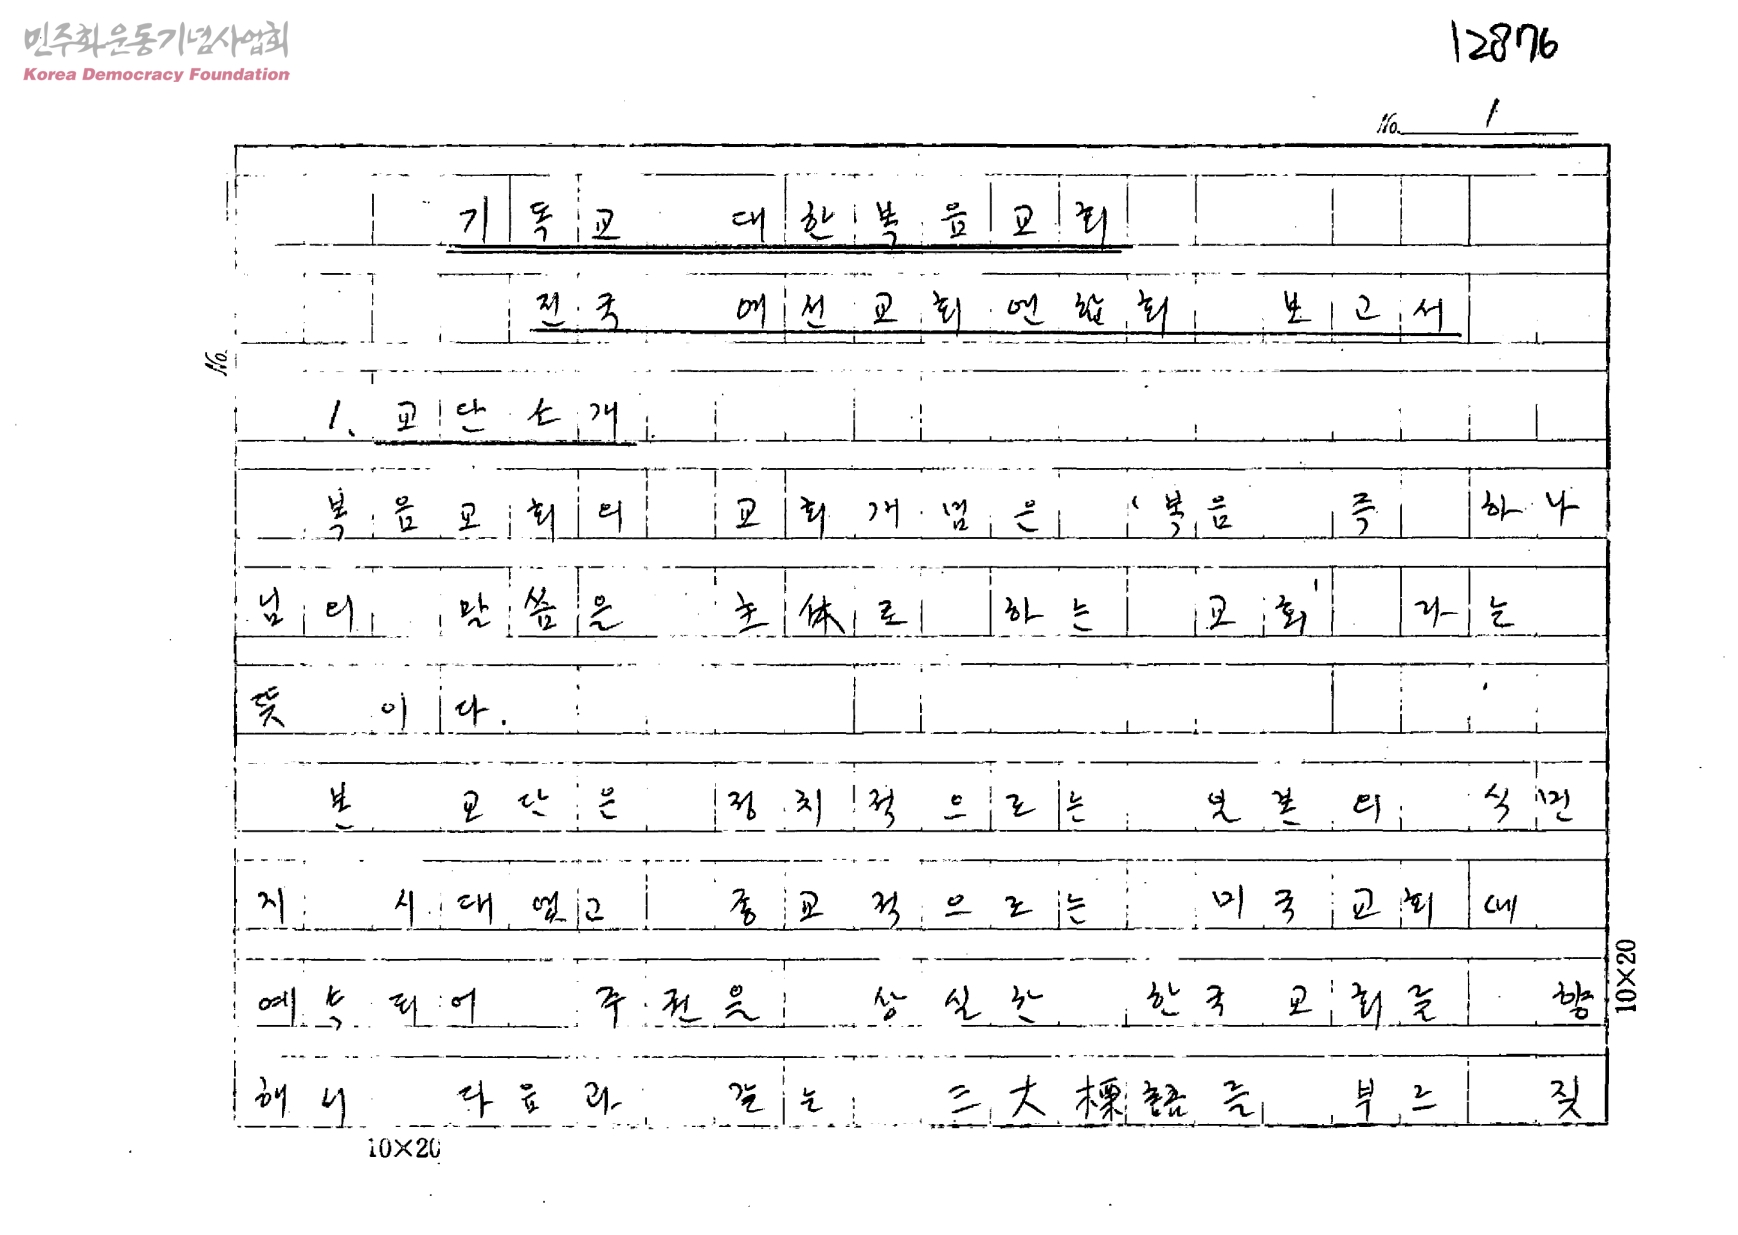 민주화운동기념사업회
Korea Democracy Foundation
12876
No. 1
기독교 대한복음교회
전국 예선교회연합회 보고서
No.
1. 교단소개
복음교회의 교회개념은 '복음 즉 하나
님의 말씀을 主体로 하는 교회' 라는
뜻 이다.
본 교단은 정치적으로는 일본의 식민
지 시대였고 종교적으로는 미국교회에
예속되어 주권을 상실한 한국교회를 향
해서 다음과 같은 三大標語를 부르 짖
10×20
10×20